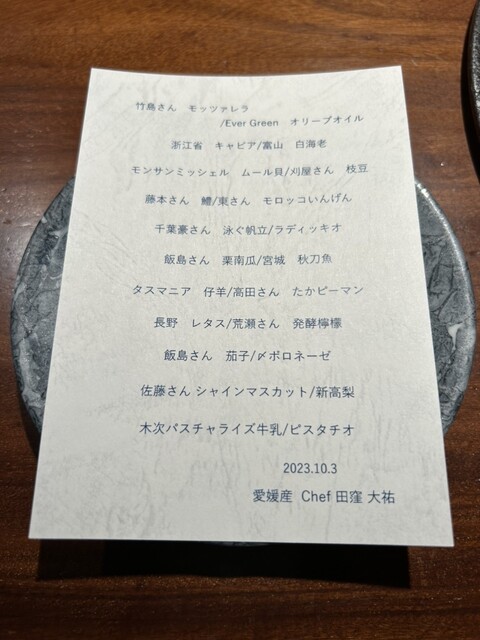 竹島さん　モッツァレラ
/Ever Green　オリーブオイル
浙江省　キャビア/富山　白海老
モンサンミッシェル　ムール貝/刈屋さん　枝豆
藤本さん　鱧/東さん　モロッコいんげん
千葉豪さん　泳ぐ帆立/ラディッキオ
飯島さん　栗南瓜/宮城　秋刀魚
タスマニア　仔羊/高田さん　たかピーマン
長野　レタス/荒瀬さん　発酵檸檬
飯島さん　茄子/〆ボロネーゼ
佐藤さん シャインマスカット/新高梨
木次パスチャライズ牛乳/ピスタチオ
2023.10.3
愛媛産　Chef 田窪 大祐